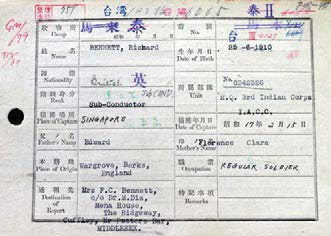 台湾 泰II
GM/79
収容所 Camp 馬来 泰 番號 No. 台
姓名 Name BENNETT, Richard 生年月日 Date of Birth 25-6-1910
國籍 Nationality 英 所屬部隊 Unit No. 6342526
階級身分 Rank Sub-Conductor H.Q. 3rd Indian Corps
I.A.O.C.
捕獲場所 Place of Capture SINGAPORE 捕獲年月日 Date of Capture 昭和 17年 2月 15日
父ノ名 Father's Name Edward 母ノ名 Mother's Name Florence Clara
本籍地 Place of Origin Wargrove, Berks, England 職業 Occupation REGULAR SOLDIER
通報先 Destination of Report Mrs F.C. Bennett, 特記事項 Remarks
c/o Dr.M.Dia,
Mena House,
The Ridgeway,
Cuffley, Nr Potters-Bar,
MIDDLESEX.